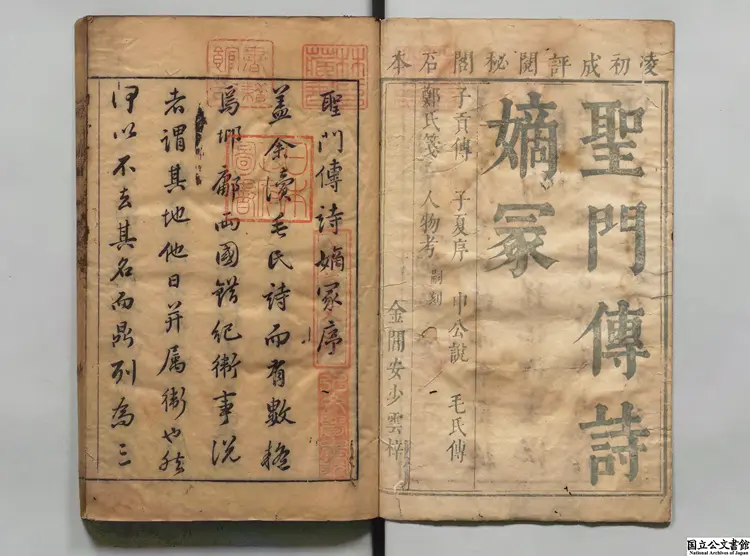 凌初成評閱秘閣石本
聖門傳詩
嫡冢
子貢傳 子夏序 申公說 毛氏傳
鄭氏箋 人物考 嗣刻
金閶安少雲梓
聖門傳詩嫡冢序
蓋余讀毛氏詩而有數疑
焉邶鄘兩國錯紀衛事説
者謂其地他日并属衛也然
何以不去其名而鼎列為三
林氏藏書
日本政府圖書
国立公文書館
National Archives of Japan